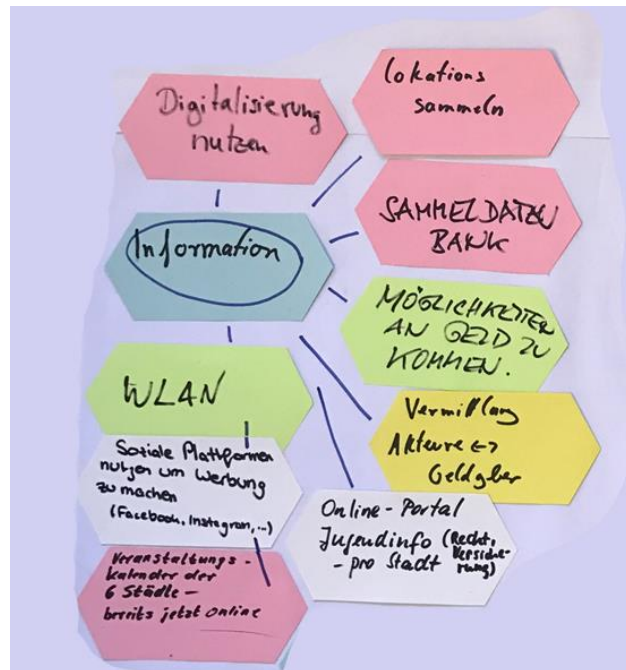 Digitalisierung
nutzen
Lokations
sammeln
Information
SAMMELDATEN
BANK
MÖGLICHKEITEN
AN GELD ZU
KOMMEN.
WLAN
Vermittlung
Akteure <->
Geldgeber
Soziale Plattformen
nutzen um Werbung
zu machen
(Facebook, Instagram,...)
Online-Portal
Jugendinfo (Recht,
Versiche-
rung)
- pro Stadt
Veranstaltungs-
kalender der
6 Städte -
bereits jetzt online